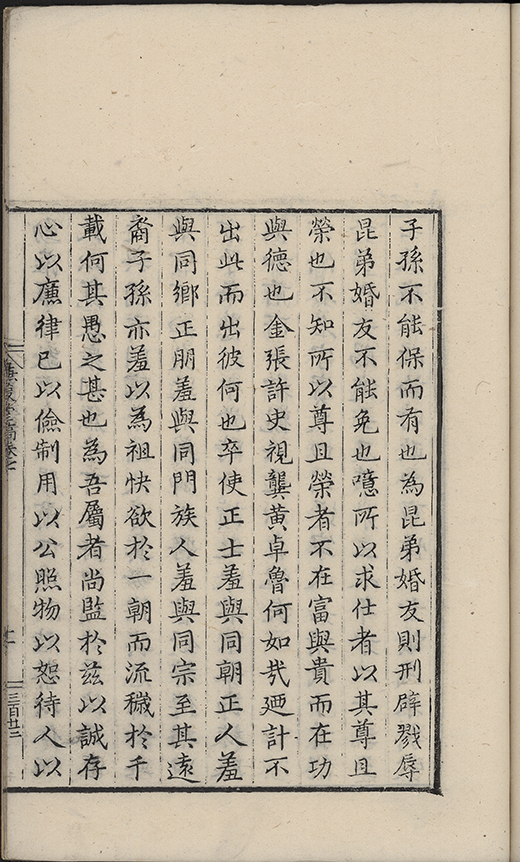 子孫不能保而有也為昆弟婚友則刑辟戮辱
昆弟婚友不能免也噫所以求仕者以其尊且
榮也不知所以尊且榮者不在富與貴而在功
與德也金張許史視龔黃卓魯何如㢤廼計不
出此而出彼何也卒使正士羞與同朝正人羞
與同鄉正朋羞與同門族人羞與同宗至其遠
裔子孫亦羞以為祖快欲於一朝而流穢於千
載何其愚之甚也為吾屬者尚監於茲以誠存
心以廉律己以儉制用以公照物以恕待人以
三百廿三